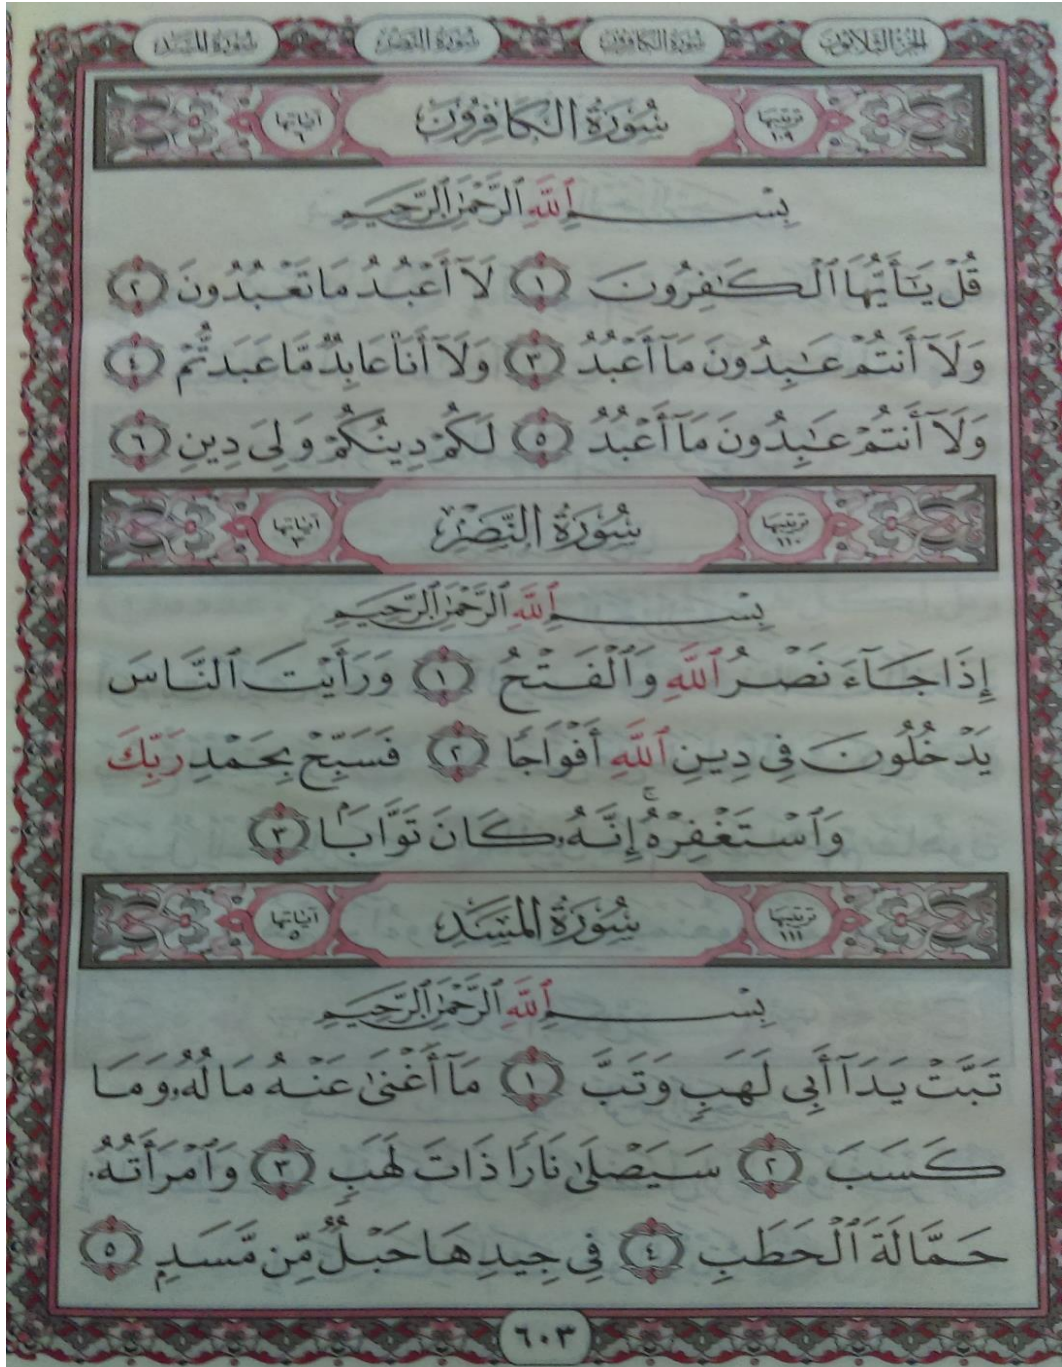 الجزء الثلاثون سورة الكافرون سورة النصر سورة المسد
ترتيبها ١٠٩ سُورَةُ الكَافِرُونَ آياتها ٦
بِسْمِ ٱللَّهِ ٱلرَّحْمَٰنِ ٱلرَّحِيمِ
قُلْ يَٰٓأَيُّهَا ٱلْكَٰفِرُونَ ١ لَآ أَعْبُدُ مَا تَعْبُدُونَ ٢
وَلَآ أَنتُمْ عَٰبِدُونَ مَآ أَعْبُدُ ٣ وَلَآ أَنَا۠ عَابِدٌ مَّا عَبَدتُّمْ ٤
وَلَآ أَنتُمْ عَٰبِدُونَ مَآ أَعْبُدُ ٥ لَكُمْ دِينُكُمْ وَلِىَ دِينِ ٦
ترتيبها ١١٠ سُورَةُ النَّصْرِ آياتها ٣
بِسْمِ ٱللَّهِ ٱلرَّحْمَٰنِ ٱلرَّحِيمِ
إِذَا جَآءَ نَصْرُ ٱللَّهِ وَٱلْفَتْحُ ١ وَرَأَيْتَ ٱلنَّاسَ
يَدْخُلُونَ فِى دِينِ ٱللَّهِ أَفْوَاجًا ٢ فَسَبِّحْ بِحَمْدِ رَبِّكَ
وَٱسْتَغْفِرْهُ ۚ إِنَّهُۥ كَانَ تَوَّابًۢا ٣
ترتيبها ١١١ سُورَةُ المَسَدِ آياتها ٥
بِسْمِ ٱللَّهِ ٱلرَّحْمَٰنِ ٱلرَّحِيمِ
تَبَّتْ يَدَآ أَبِى لَهَبٍ وَتَبَّ ١ مَآ أَغْنَىٰ عَنْهُ مَالُهُۥ وَمَا
كَسَبَ ٢ سَيَصْلَىٰ نَارًا ذَاتَ لَهَبٍ ٣ وَٱمْرَأَتُهُۥ
حَمَّالَةَ ٱلْحَطَبِ ٤ فِى جِيدِهَا حَبْلٌ مِّن مَّسَدٍۭ ٥
٦٠٣